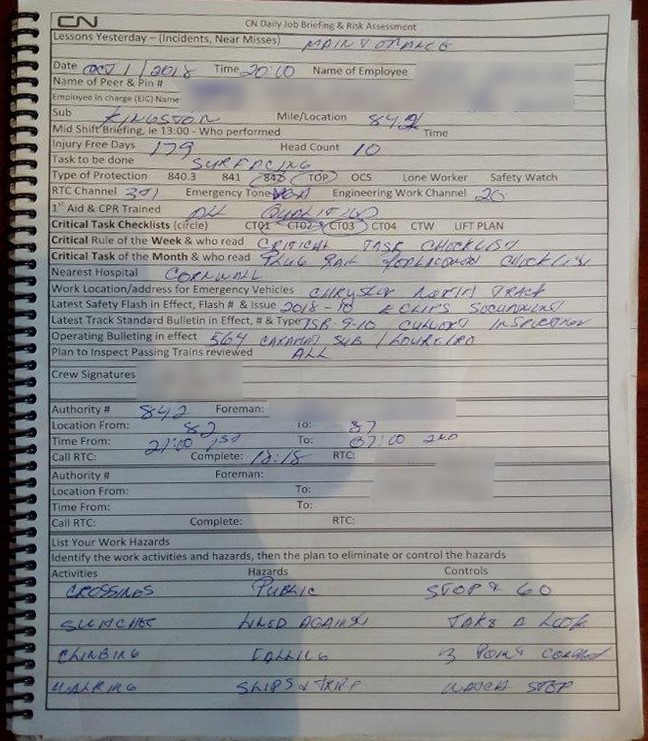 CN CN Daily Job Briefing & Risk Assessment
Lessons Yesterday – (Incidents, Near Misses)
Date OCT 1 / 2018 Time 20:00 Name of Employee
Name of Peer & Pin #
Employee in charge (EIC) Name
Sub KINGSTON Mile/Location
Mid Shift Briefing, ie 13:00 - Who performed Time
Injury Free Days 179 Head Count 10
Task to be done SURFACING
Type of Protection 840.3 841 842 TOP OCS Lone Worker Safety Watch
RTC Channel Emergency Tone Engineering Work Channel 20
1st Aid & CPR Trained ALL QUALIFIED
Critical Task Checklists (circle) CT01 CT02 CT03 CT04 CTW LIFT PLAN
Critical Rule of the Week & who read CRITICAL TASK CHECKLIST
Critical Task of the Month & who read PLUG RAIL CHECKLIST
Nearest Hospital CORNWALL
Work Location/address for Emergency Vehicles NORTH TRACK
Latest Safety Flash in Effect, Flash # & Issue 2018-10 ECLIPS
Latest Track Standard Bulletin in Effect, # & Type TSB 9-10 CULVERT INSPECTION
Operating Bulleting in effect 564 SUB
Plan to Inspect Passing Trains reviewed ALL
Crew Signatures
Authority # 842 Foreman:
Location From: 82 To: 87
Time From: 21:00 1ST To: 07:00 2ND
Call RTC: Complete: 18:18 RTC:
Authority # Foreman:
Location From: To:
Time From: To:
Call RTC: Complete: RTC:
List Your Work Hazards
Identify the work activities and hazards, then the plan to eliminate or control the hazards
Activities Hazards Controls
CROSSINGS PUBLIC STOP & GO
LINED AGAINST TAKE A LOOK
CLIMBING FALLING 3 POINT CONTACT
WALKING SLIPS & TRIP WATCH STEP